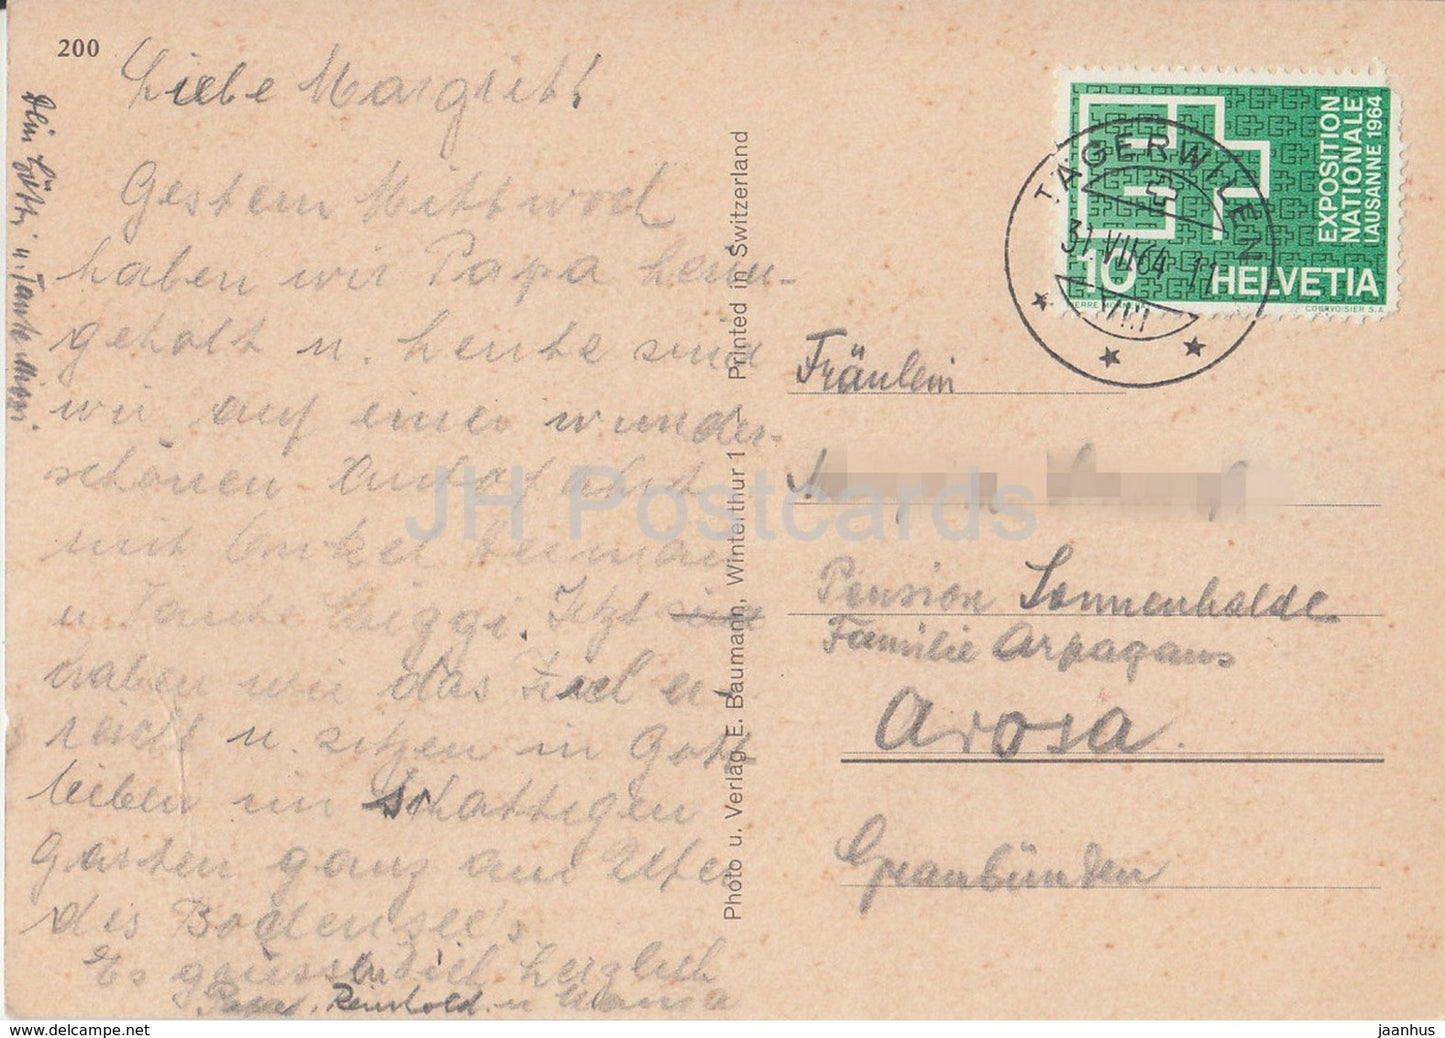 200
Liebe Margrith!
Gestern Mittwoch
haben wir Papa heim-
geholt u. heute sind
wir auf einer wunder-
schönen Autofahrt
mit Onkel Herman
u Tante Siggi. Jetzt sind
haben wir das Ziel er-
reicht u. sitzen in Gott
lieben im schattigen
Garten ganz am Ufer
des Bodensee's
Es grüssen dich herzlich
Papa, Reinhold u Mama
Dein Götti u. Tante
Photo u. Verlag E. Baumann, Winterthur 1 - Printed in Switzerland
EXPOSITION
NATIONALE
LAUSANNE 1964
10 HELVETIA
COURVOISIER S.A.
TÄGERWILEN
31.VII.64-11
Fräulein
Pension Sonnenhalde
Familie Arpagaus
Arosa.
Graubünden
JH Postcards
www.delcampe.net
jaanhus